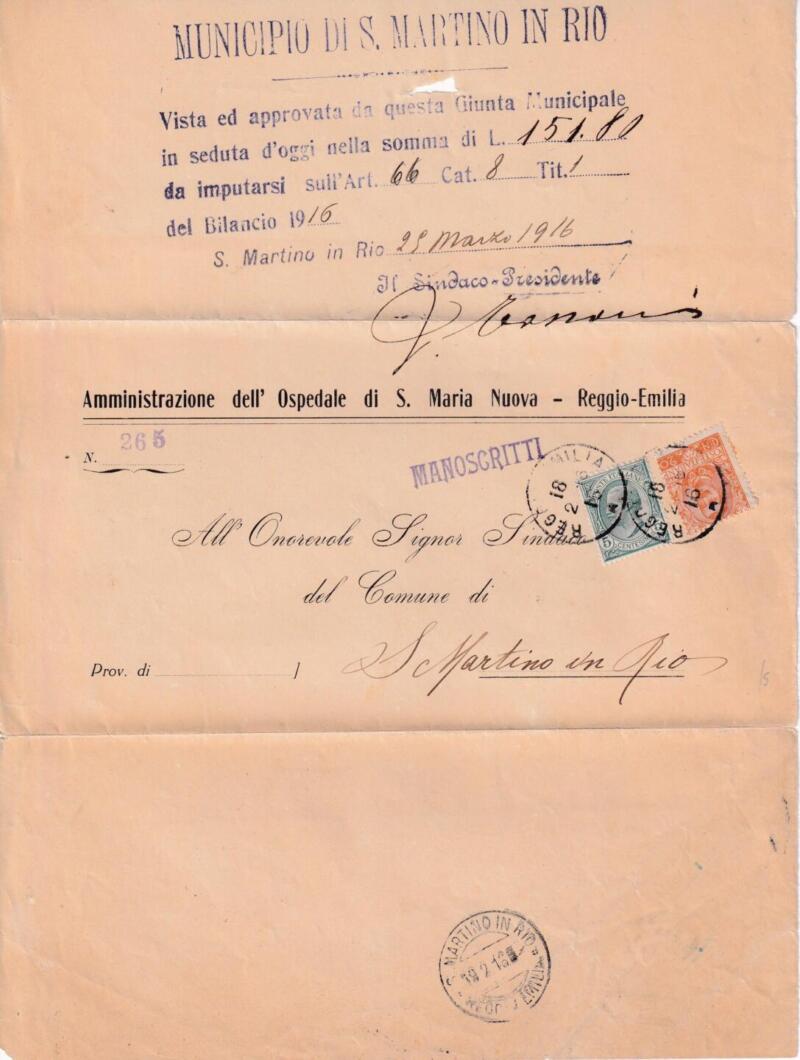 MUNICIPIO DI S. MARTINO IN RIO
Vista ed approvata da questa Giunta Municipale
in seduta d'oggi nella somma di L. 151.80
da imputarsi sull'Art. 66 Cat. 8 Tit. 1
del Bilancio 1916
S. Martino in Rio 29 Marzo 1916
Il Sindaco-Presidente
Amministrazione dell' Ospedale di S. Maria Nuova - Reggio-Emilia
N. 265
MANOSCRITTI
All' Onorevole Signor Sindaco
del Comune di
S Martino in Rio
Prov. di
5 CENT
18 2 16
18 2 16
S. MARTINO IN RIO
19 2 16
REGGIO EMILIA